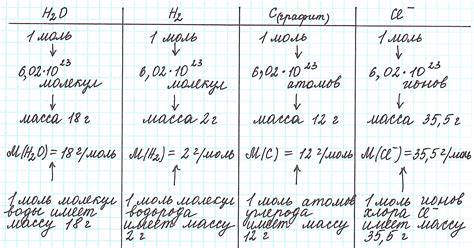 H₂O
1 моль
6,02·10²³
молекул
масса 18 г
M(H₂O) = 18 г/моль
1 моль молекул
воды имеет
массу 18 г
H₂
1 моль
6,02·10²³
молекул
масса 2 г
M(H₂) = 2 г/моль
1 моль молекул
водорода
имеет массу
2 г
C(графит)
1 моль
6,02·10²³
атомов
масса 12 г
M(C) = 12 г/моль
1 моль атомов
углерода
имеет массу
12 г
Cl⁻
1 моль
6,02·10²³
ионов
масса 35,5 г
M(Cl⁻) = 35,5 г/моль
1 моль ионов
хлора Cl⁻
имеет массу
35,6 г